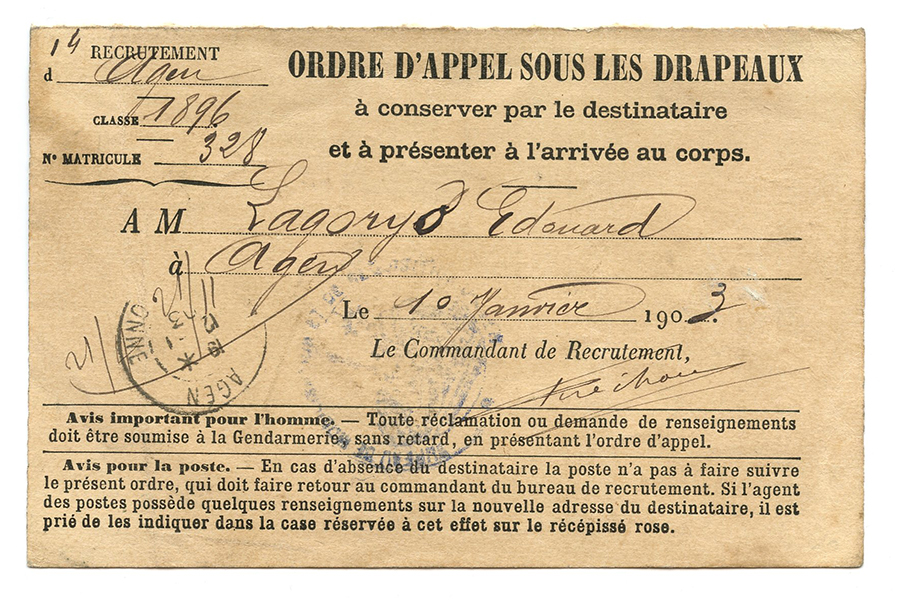 14
RECRUTEMENT
d Agen
CLASSE 1896
Nº MATRICULE 328
ORDRE D'APPEL SOUS LES DRAPEAUX
à conserver par le destinataire
et à présenter à l'arrivée au corps.
A M Lagory Edouard
à Agen
Le 10 Janvier 1903.
Le Commandant de Recrutement,
AGEN
Avis important pour l'homme. — Toute réclamation ou demande de renseignements
doit être soumise à la Gendarmerie, sans retard, en présentant l'ordre d'appel.
Avis pour la poste. — En cas d'absence du destinataire la poste n'a pas à faire suivre
le présent ordre, qui doit faire retour au commandant du bureau de recrutement. Si l'agent
des postes possède quelques renseignements sur la nouvelle adresse du destinataire, il est
prié de les indiquer dans la case réservée à cet effet sur le récépissé rose.